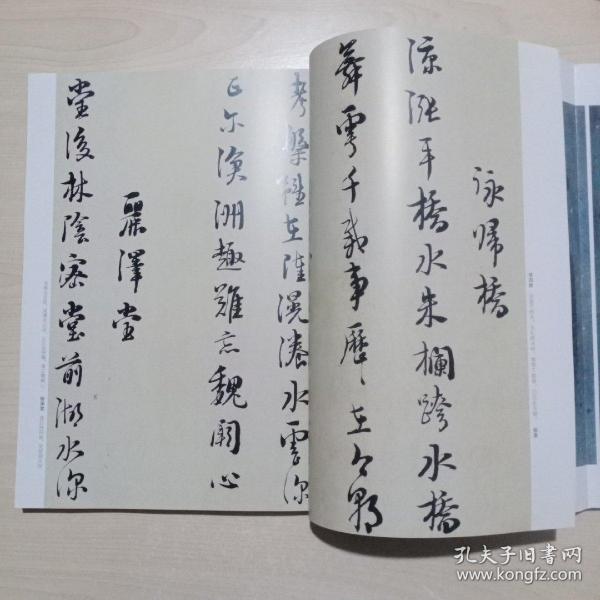 詠歸橋
漲平橋水朱欄跨水橋
舞雩千載事歷〻在今朝
考槃雖在陸滉瀁水雲深
正尔滄洲趣難忘魏闕心
麗澤堂
堂後林陰密堂前湖水深
孔夫子旧书网
www.kongfz.com